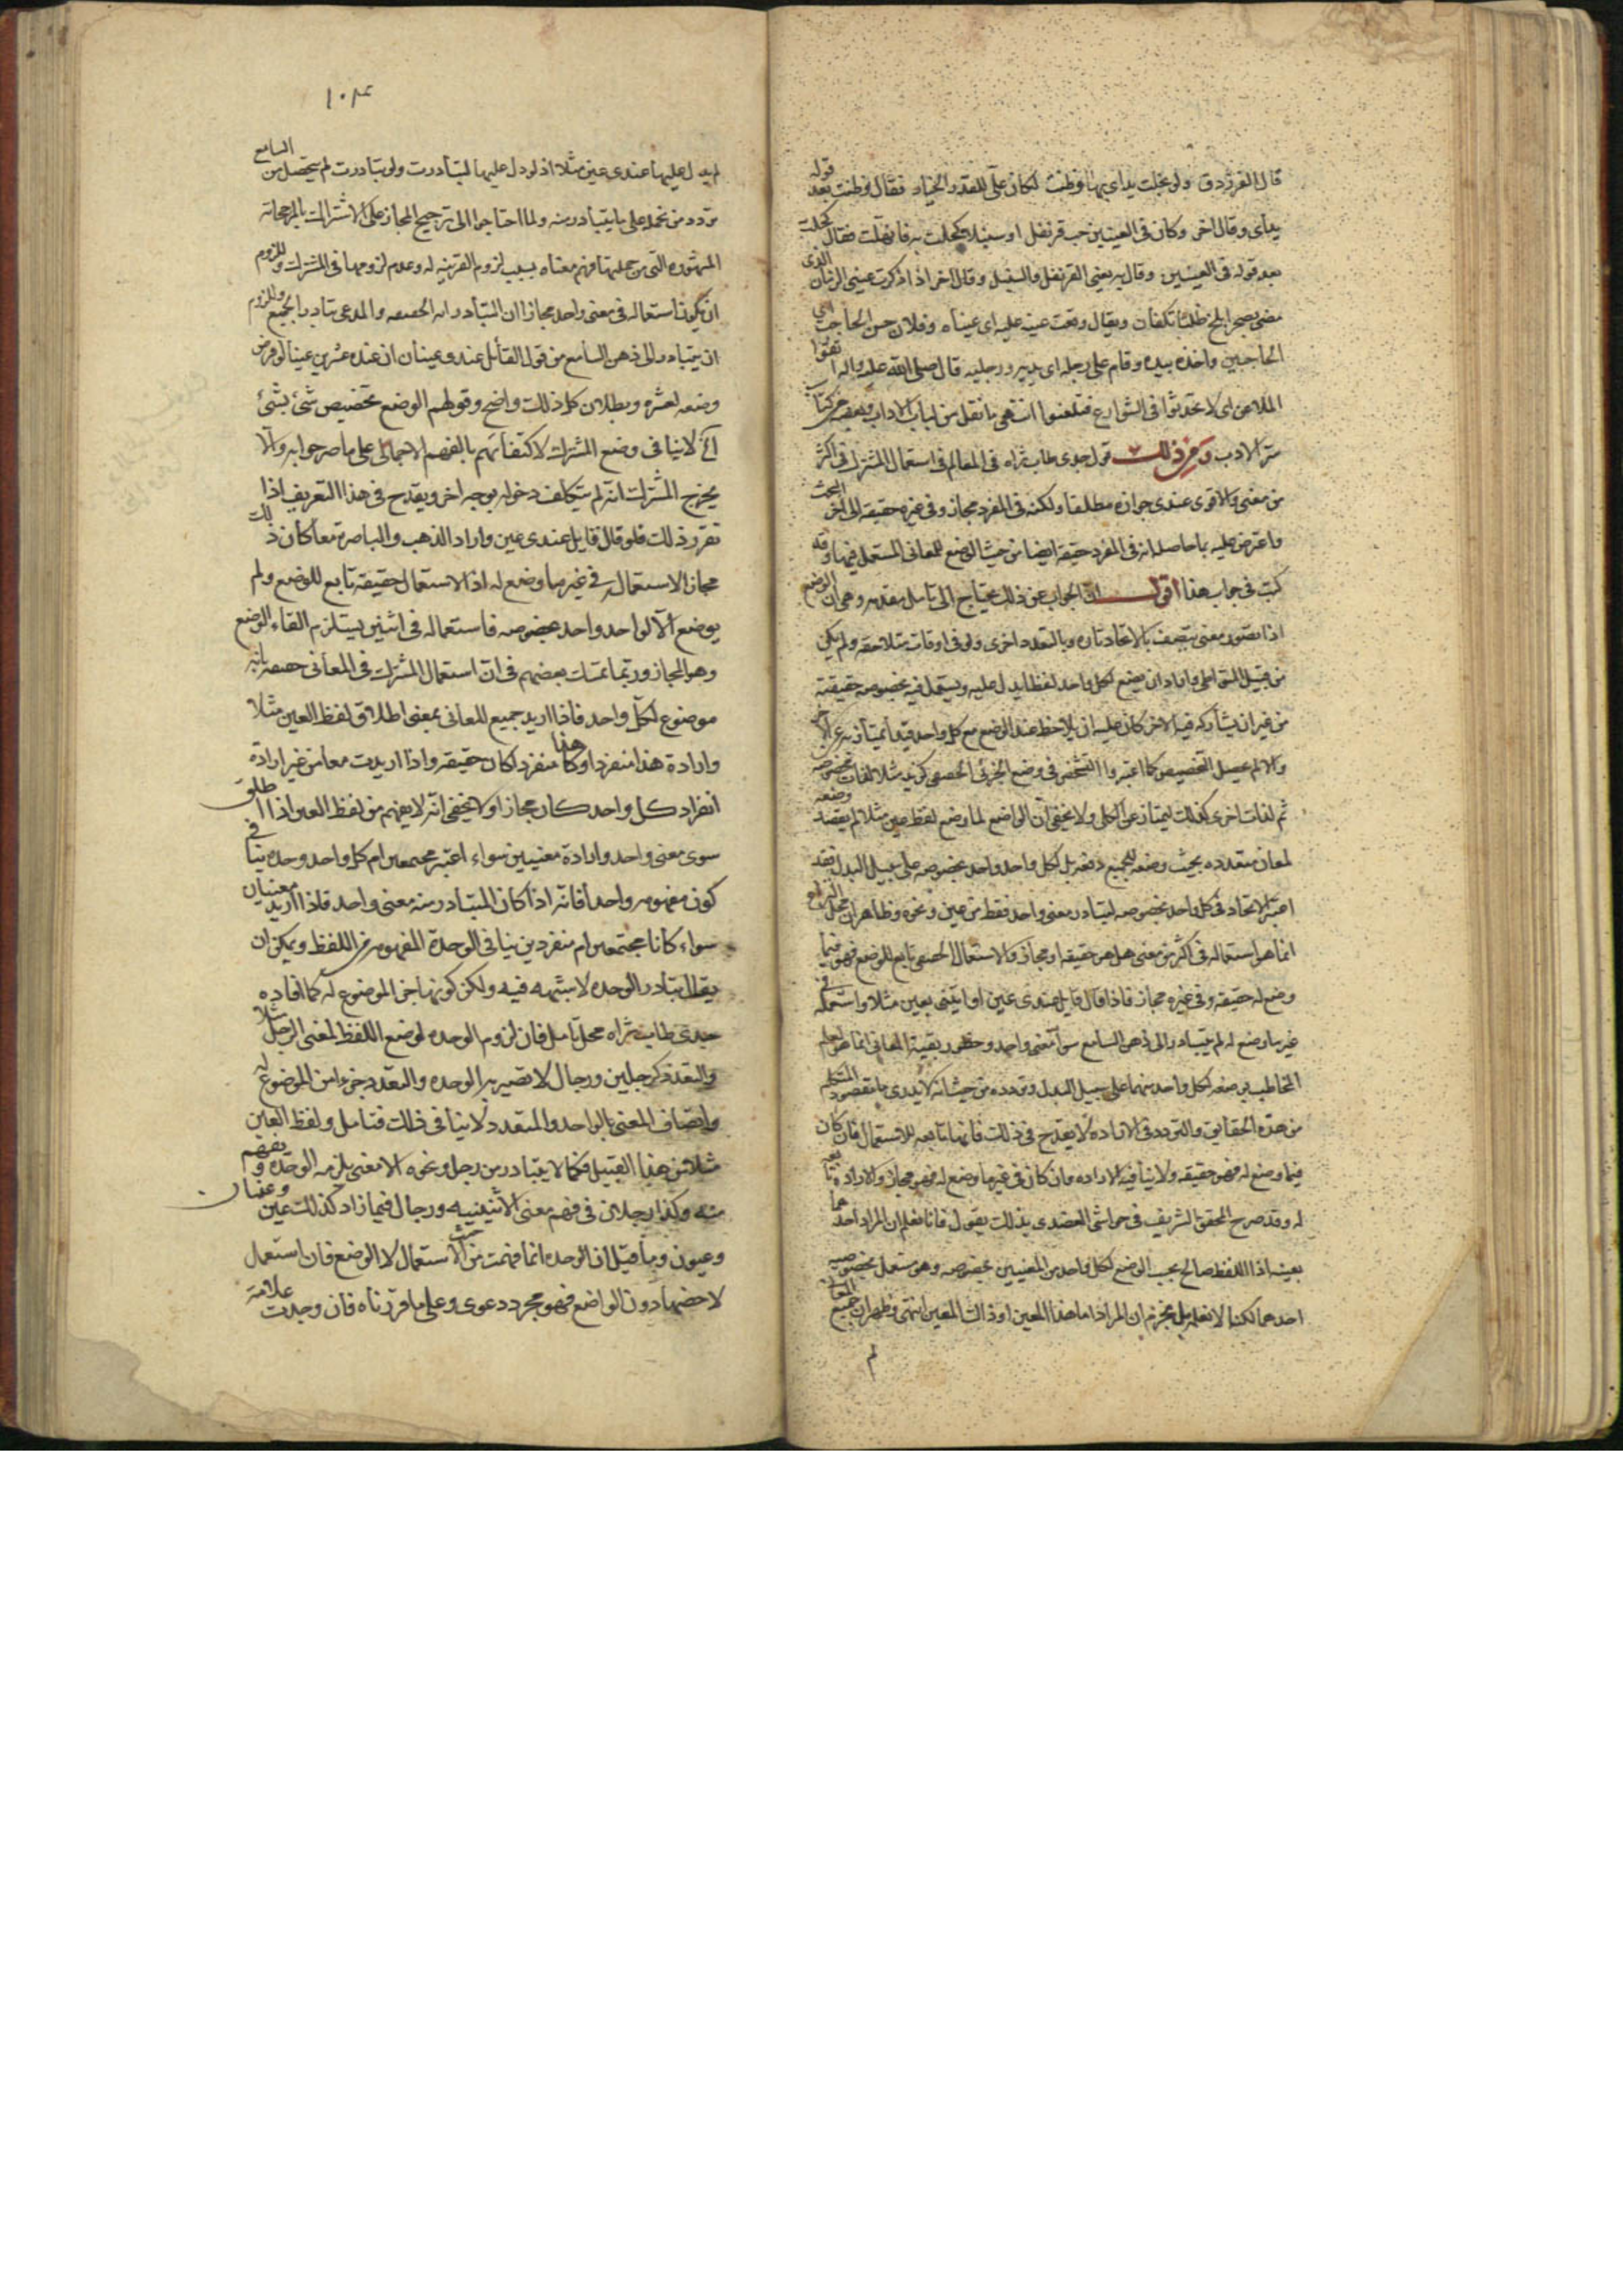 قال الفرزدق ولو بخلت يداى بها وظنت لكان على للقدر الخيار فقال وظنت بعد قوله
يداى وقال اخر وكان فى العينين حب قرنفل او سنبلا كحلت به فانهلت فقال كحلت
بعد قوله فى العينين وقال به يعنى القرنفل والسنبل وقال اخر اذا ذكرت عينى الزمان الذى
مضى بصحراء فلج ظلتا تكفان ويقال وقعت عينه عليه اى عيناه وفلان حسن الحاجب اى
الحاجبين واخذه بيده وقام على رجله اى بيديه ورجليه قال صلى الله عليه واله اتقوا
الملاعن اى لا تحدثوا فى الشوارع فتلعنوا انتهى ما نقل من لباب الاداب وبعضه من كتاب
سر الادب ومن ذلك قول جدى طاب ثراه فى المعالم فى استعمال المشترك فى اكثر
من معنى والاقوى عندى جوازه مطلقا ولكنه فى المفرد مجاز وفى غيره حقيقة الى اخر البحث
واعترض عليه بما حاصله انه فى المفرد حقيقة ايضا من حيث الوضع للمعانى المستعمل فيها وقد
كتبت فى جواب هذا اقول ان الجواب عن ذلك يحتاج الى تامل مقدمه وهى ان الواضع
اذا تصور معنى يتصف بالاتحاد تاره وبالتعدد اخرى ولو فى اوقات متلاحقه ولم يكن
من قبيل المتواطى واراد ان يضع لكل واحد لفظا يدل عليه ويستعمل فيه بخصوصه حقيقة
من غير ان يشاركه فيه الاخر كان عليه ان يلاحظ عند الوضع مع كل واحد قيدا يمتاز به عن الاخر
والا لم يحصل التخصيص كما اعتبروا التشخص فى وضع الجزئى الحقيقى كزيد مثلا لذات مخصوصه
ثم لذات اخرى كذلك ليمتاز عن الكلى ولا يخفى ان الواضع لما وضع لفظ عين مثلا لم يقصد وضعه
لمعان متعدده بحيث وضعه للجميع دفعه بل لكل واحد واحد بخصوصه على سبيل البدل فقد
اعتبر الاتحاد فى كل واحد بخصوصه ليتبادر معنى واحد فقط من عين ونحوه وظاهر ان محل النزاع
انما هو استعماله فى اكثر من معنى هل هو حقيقه او مجاز والاستعمال الحقيقى تابع للوضع فهو فيما
وضع له حقيقه وفى غيره مجاز فاذا قال قايل عندى عين او ايتنى بعين مثلا واستعمله فى
غير ما وضع له لم يتبادر الى ذهن السامع سوى معنى واحد وخطور بقية المعانى انما هو لعلم
المخاطب بوضعه لكل واحد منهما على سبيل البدل وتردده من حيث انه لا يدرى ما مقصود المتكلم
من هذه الحقايق والتردد فى الاراده لا يقدح فى ذلك فانها تابعه للاستعمال فان كان
فيما وضع له فهو حقيقه ولا ينافيه الاراده وان كان فى غير ما وضع له فهو مجاز والاراده تابعه
له وقد صرح المحقق الشريف فى حواشى العضدى بذلك بقوله فانا نعلم ان المراد احدهما
بعينه اذا اللفظ صالح بحسب الوضع لكل واحد من المعنيين بخصوصه وهو مستعمل بخصوصيه
احدهما لكنا لا نعلمه بل نجزم ان المراد اما هذا المعين او ذاك المعين انتهى وظهر ان جميع المعانى
لم
١٠٤
لم يدل عليها عندى عين مثلا اذ لو دل عليها لتبادرت ولو تبادرت لم يتحصل من السامع
تردد من نحمله على ما يتبادر منه ولما احتاجوا الى ترجيح المجاز على الاشتراك بالمرجحات
المشهوره التى من جملتها فهم معناه بسبب لزوم القرينه له وعدم لزومها فى المشترك وللزوم
ان يكون استعماله فى معنى واحد مجازا ان التبادر اية الحقيقه والمدعى تبادر الجميع وللزوم
ان يتبادر الى ذهن السامع من قول القائل عندى عينان ان عنده عشرين عينا لو فرض
وضعه لعشره وبطلان كل ذلك واضح وقولهم الوضع تخصيص شئ بشئ
الخ لا ينافى وضع المشترك لاكتفائهم بالفهم الاجمالى على ما صرحوا به والا
يخرج المشترك انه لم يتكلف دخوله بوجه اخر ويقدح فى هذا التعريف اذا
تقرر ذلك فلو قال قايل عندى عين واراد الذهب والباصرة معا كان ذلك
مجازا لاستعماله فى غير ما وضع له اذ الاستعمال حقيقة تابع للوضع ولم
يوضع الا لواحد واحد بخصوصه فاستعماله فى اثنين يستلزم القاء الوضع
وهو المجاز وربما تمسك بعضهم فى ان استعمال المشترك فى المعانى حقيقه بانه
موضوع لكل واحد فاذا اريد جميع المعانى بمعنى اطلاق لفظ العين مثلا
وارادة هذا منفردا وهذا منفردا كان حقيقة واذا اريدت معا من غير ارادة
انفراد كل واحد كان مجازا ولا يخفى انه لا يفهم من لفظ العين اذا اطلق
سوى معنى واحد وارادة معنيين سواء اعتبر مجتمعين ام كل واحد وحده ينافى
كون مفهومه واحدا فانه اذا كان المتبادر منه معنى واحد فاذا اريد معنيان
سواء كانا مجتمعين ام منفردين ينافى الوحدة المفهومه من اللفظ ويمكن ان
يقال تبادر الوحده لا شبهه فيه ولكن كونها جزء الموضوع له كما افاده
جدى طاب ثراه محل تامل فان لزوم الوحده لوضع اللفظ لمعنى الرجل مثلا
والتعدد كرجلين ورجال لا تصير به الوحده والتعدد جزءا من الموضوع له
واتصاف المعنى بالواحد والمتعدد لا ينافى ذلك فتامل ولفظ العين
مثلا من هذا القبيل فكما لا يتبادر من رجل ونحوه الا معنى يلزمه الوحده ويفهم
منه وكذا رجلان فى فهم معنى الاثنينيه ورجال فيما زاد كذلك عين وعينان
وعيون وما قيل ان الوحده انما فهمت من حيث الاستعمال لا الوضع فان استعمل
لاحضها دون الواضع فهو مجرد دعوى وعلى ما قررناه فان وجدت علامة